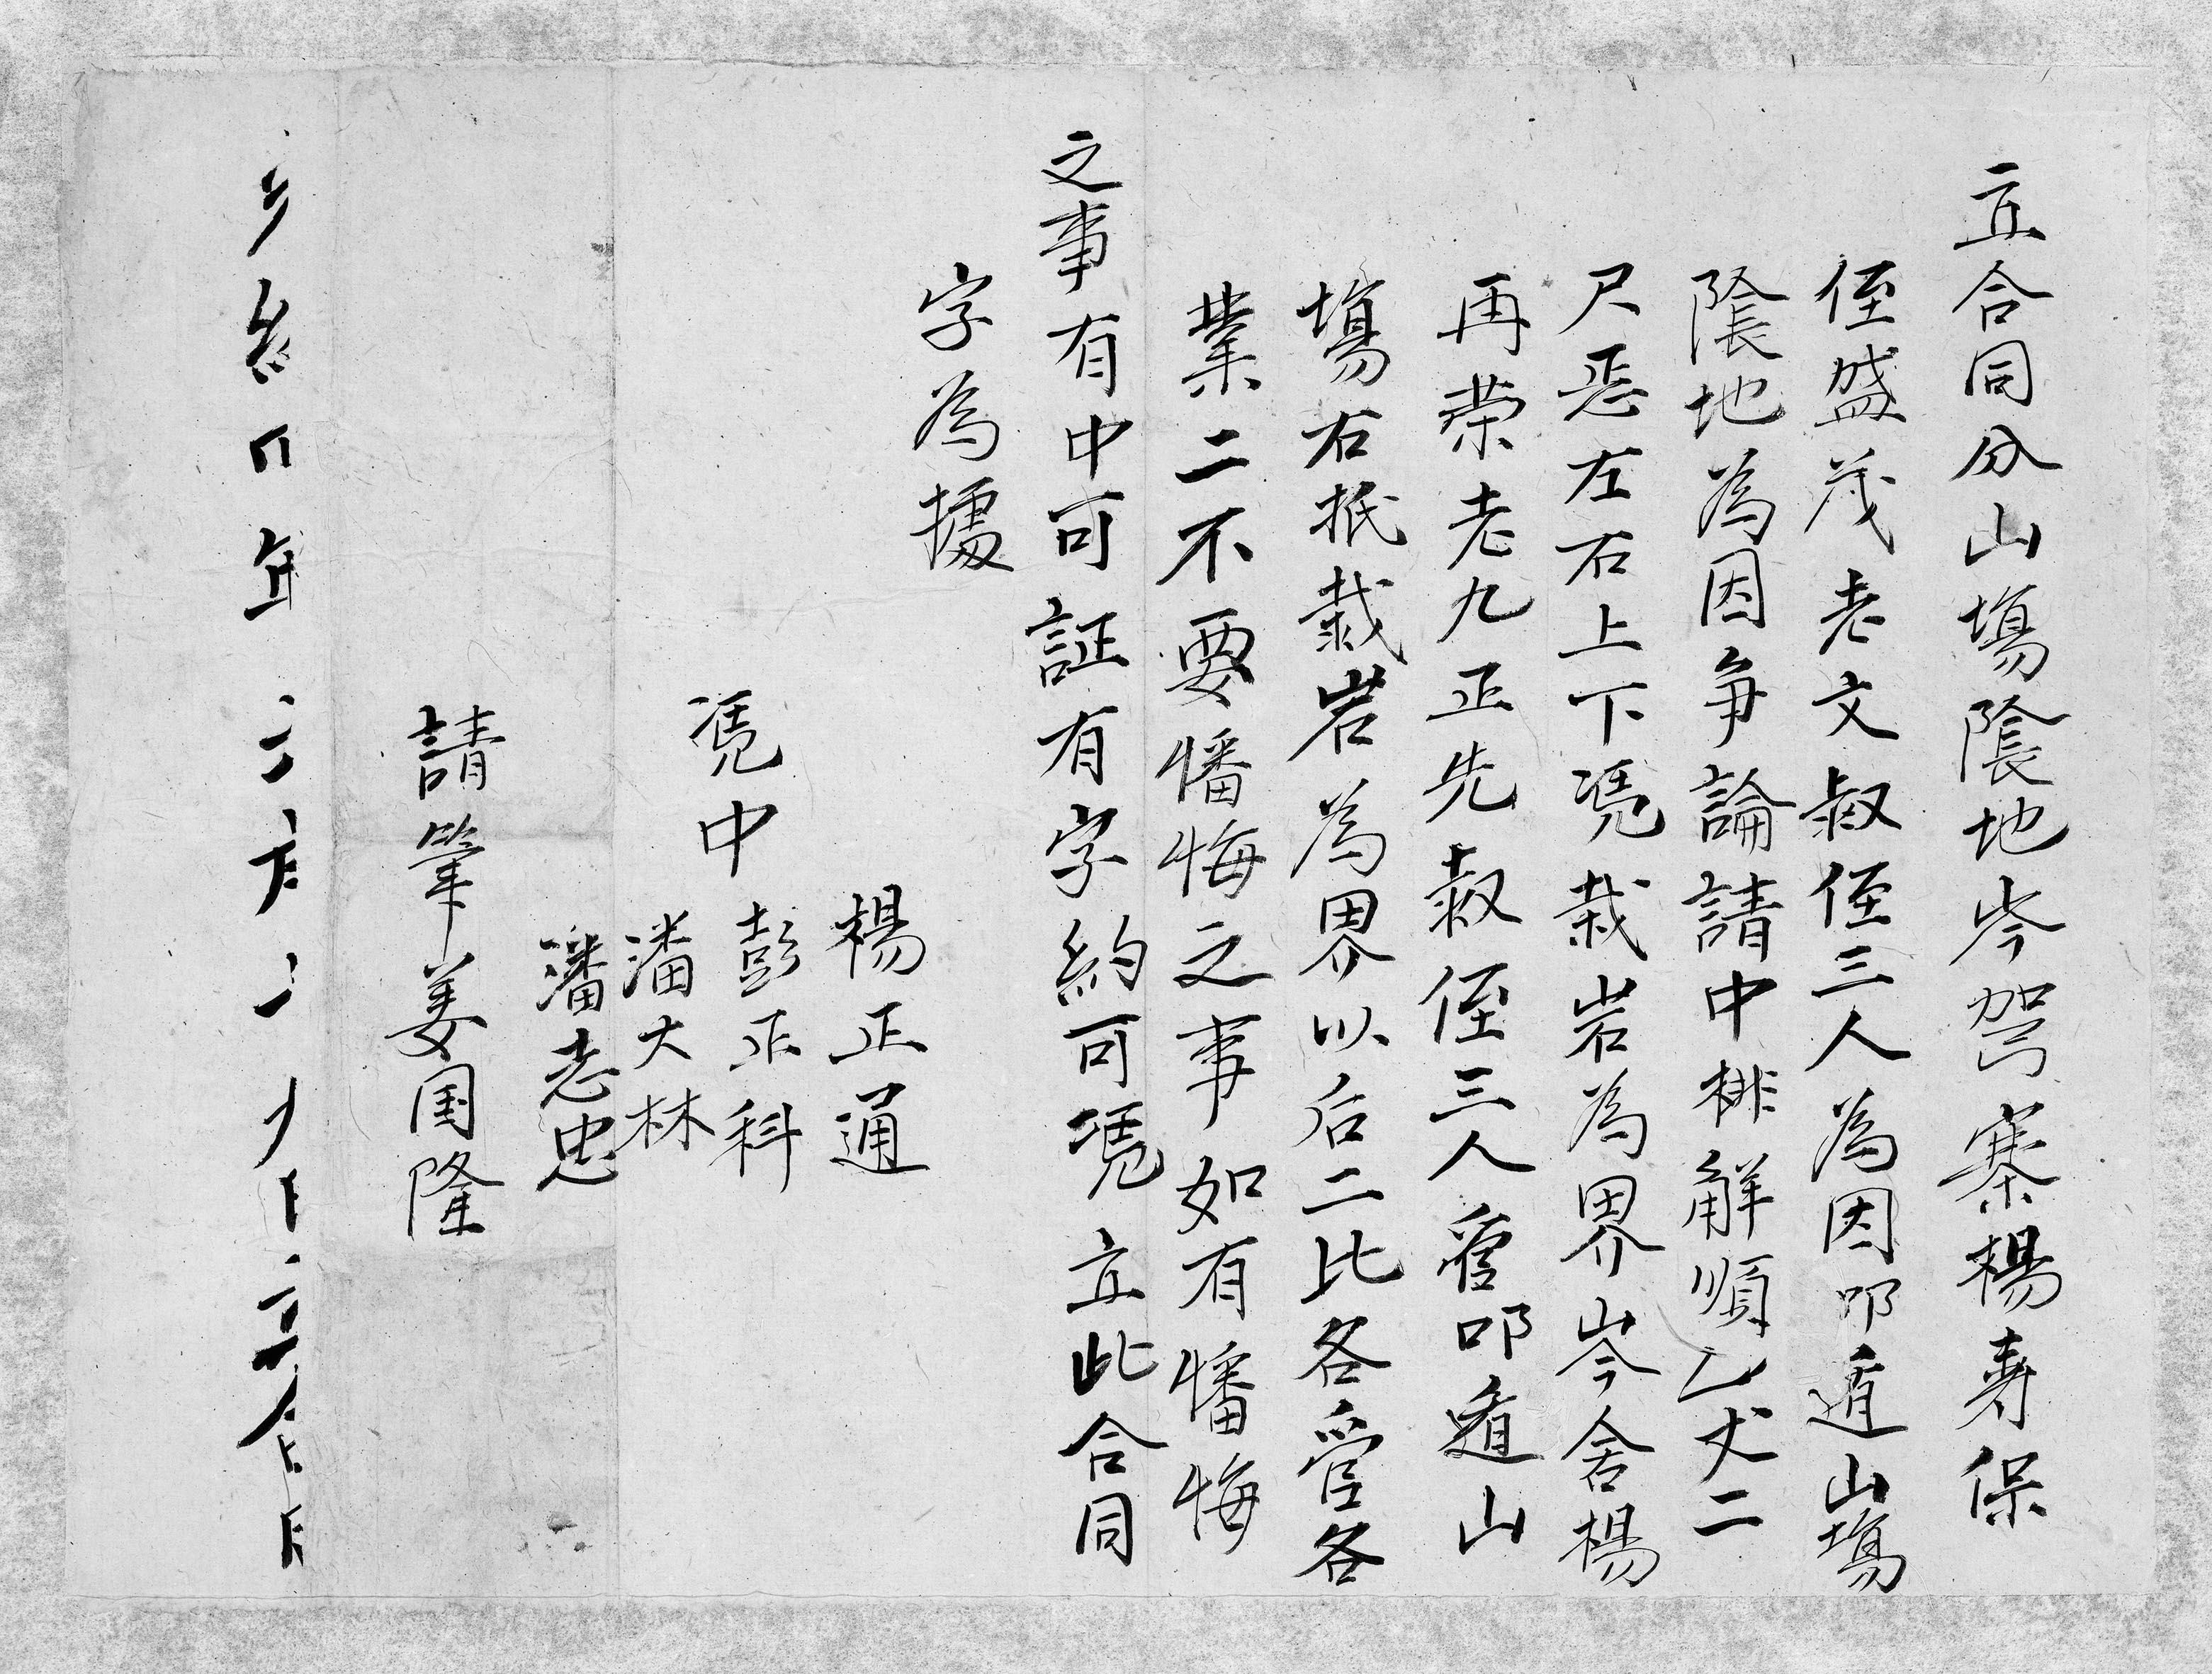 立合同分山塲隂地岑驾寨楊寿保
侄盛茂老文叔侄三人為因卬遁山塲
隂地為因争論請中排觧順乙丈二
尺忌左右上下凭栽岩為界岑舍楊
再荣老九正先叔侄三人管卬遁山
塲右抵栽岩為界以后二比各管各
業二不要憣悔之事如有憣悔
之事有中可証有字約可凭立此合同
字為據
楊正通
凭中 彭正科
潘大林
潘老忠
請筆姜国隆